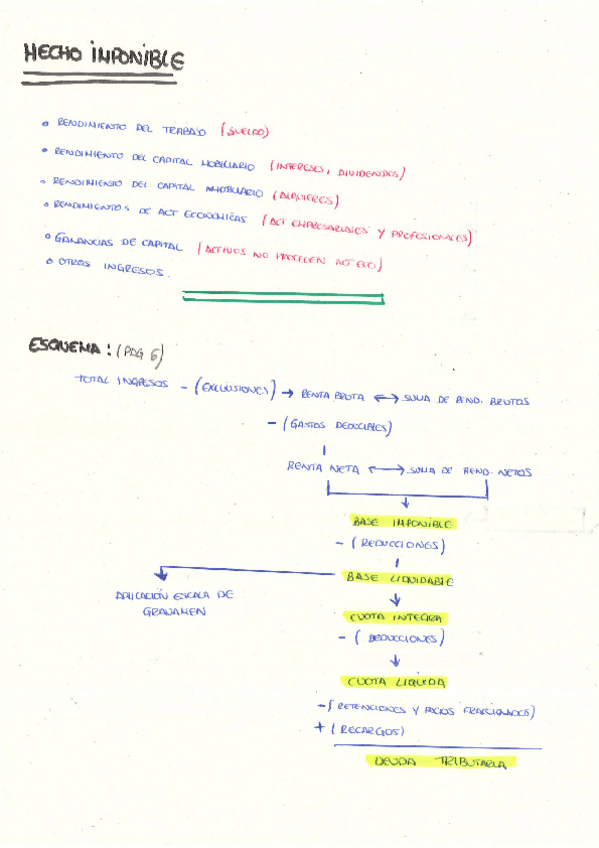 HECHO IMPONIBLE
• RENDIMIENTO DEL TRABAJO (SUELDO)
• RENDIMIENTO DEL CAPITAL MOBILIARIO (INTERESES, DIVIDENDOS)
• RENDIMIENTO DEL CAPITAL INMOBILIARIO (ALQUILERES)
• RENDIMIENTOS DE ACT ECONOMICAS (ACT EMPRESARIALES Y PROFESIONALES)
• GANANCIAS DE CAPITAL (ACTIVOS NO PROCEDEN ACT ECO)
• OTROS INGRESOS.
ESQUEMA: (PAG 6)
TOTAL INGRESOS - (EXCLUSIONES) → RENTA BRUTA ↔ SUMA DE REND. BRUTOS
- (GASTOS DEDUCIBLES)
RENTA NETA ↔ SUMA DE REND. NETOS
BASE IMPONIBLE
- (REDUCCIONES)
BASE LIQUIDABLE
APLICACIÓN ESCALA DE
GRAVAMEN
CUOTA INTEGRA
- (DEDUCCIONES)
CUOTA LÍQUIDA
- (RETENCIONES Y PAGOS FRACCIONADOS)
+ (RECARGOS)
DEUDA TRIBUTARIA